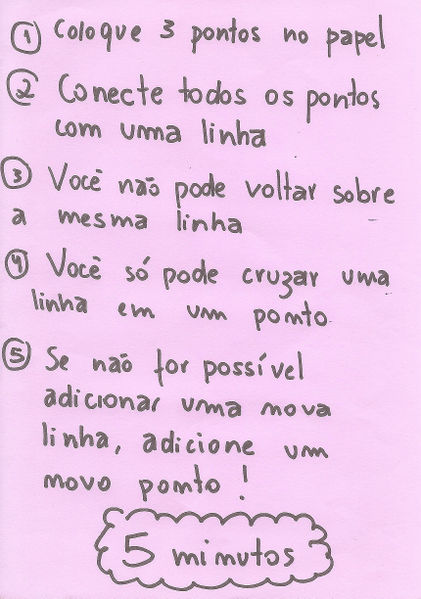 1 Coloque 3 pontos no papel
2 Conecte todos os pontos
com uma linha
3 Você não pode voltar sobre
a mesma linha
4 Você só pode cruzar uma
linha em um ponto
5 Se não for possível
adicionar uma nova
linha, adicione um
novo ponto!
5 minutos